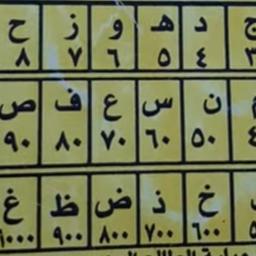 ج د ه و ز ح
٣ ٤ ٥ ٦ ٧ ٨
ن س ع ف ص
٤ ٥٠ ٦٠ ٧٠ ٨٠ ٩٠
خ ذ ض ظ غ
٦٠٠ ٧٠٠ ٨٠٠ ٩٠٠ ١٠٠٠